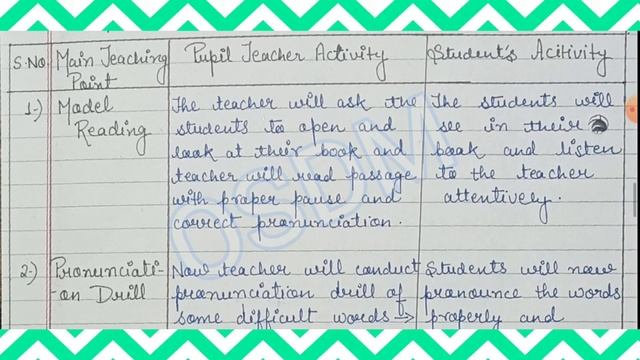 S.No. Main Teaching Point Pupil Teacher Activity Student's Acitivity
1:) Model Reading
The teacher will ask the
students to open and
look at their book and
teacher will read passage
with proper pause and
correct pronunciation.
The students will
see in their
book and listen
to the teacher
attentively.
2:) Pronunciati-
-on Drill
Now teacher will conduct
pronunciation drill of
some difficult words ⇒
Students will now
pronounce the words
properly and
OSDM